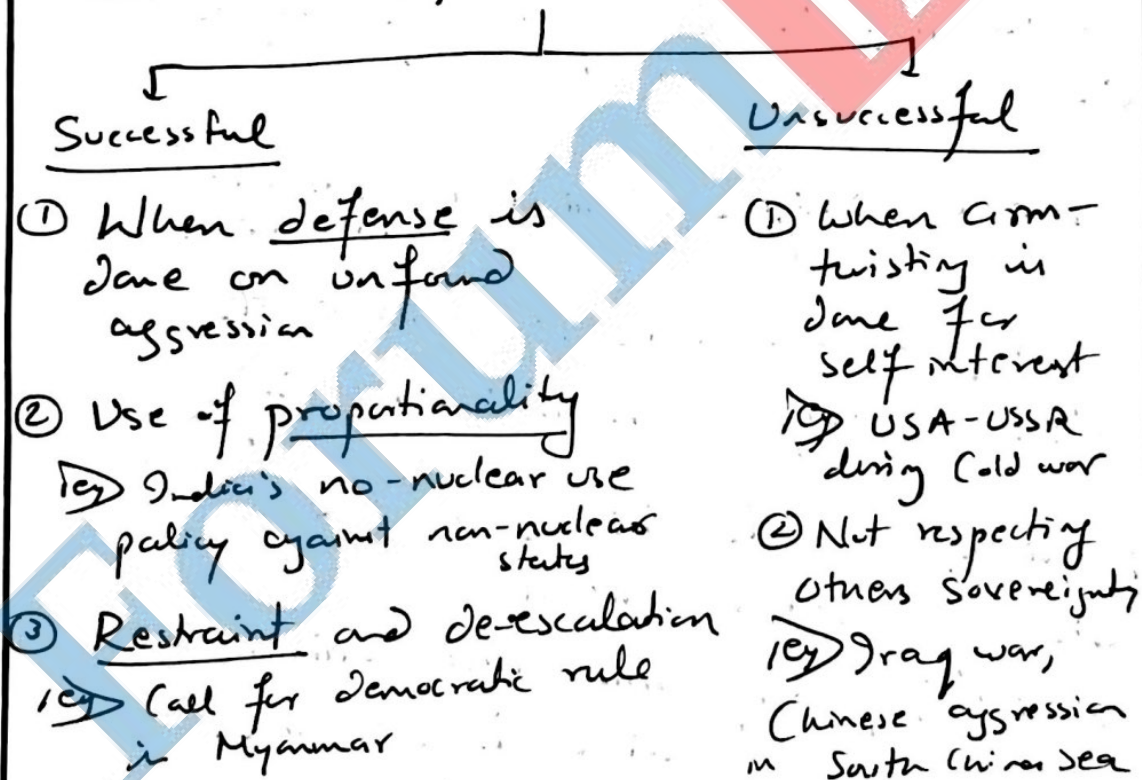 Successful
① When defense is
done on unfound
aggression
② Use of proportionality
eg> India's no-nuclear use
policy against non-nuclear
states
③ Restraint and de-escalation
eg> Call for democratic rule
in Myanmar
Unsuccessful
① When arm-
twisting is
done for
self interest
eg> USA-USSR
during Cold war
② Not respecting
others sovereignty
eg> Iraq war,
Chinese aggression
in South China Sea
Forum